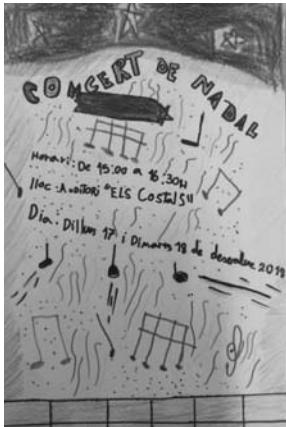 CONCERT DE NADAL
Horari: De 15:00 a 16:30H
lloc: Auditori "ELS Costals"
Dia: Dilluns 17 i Dimarts 18 de desembre 2018